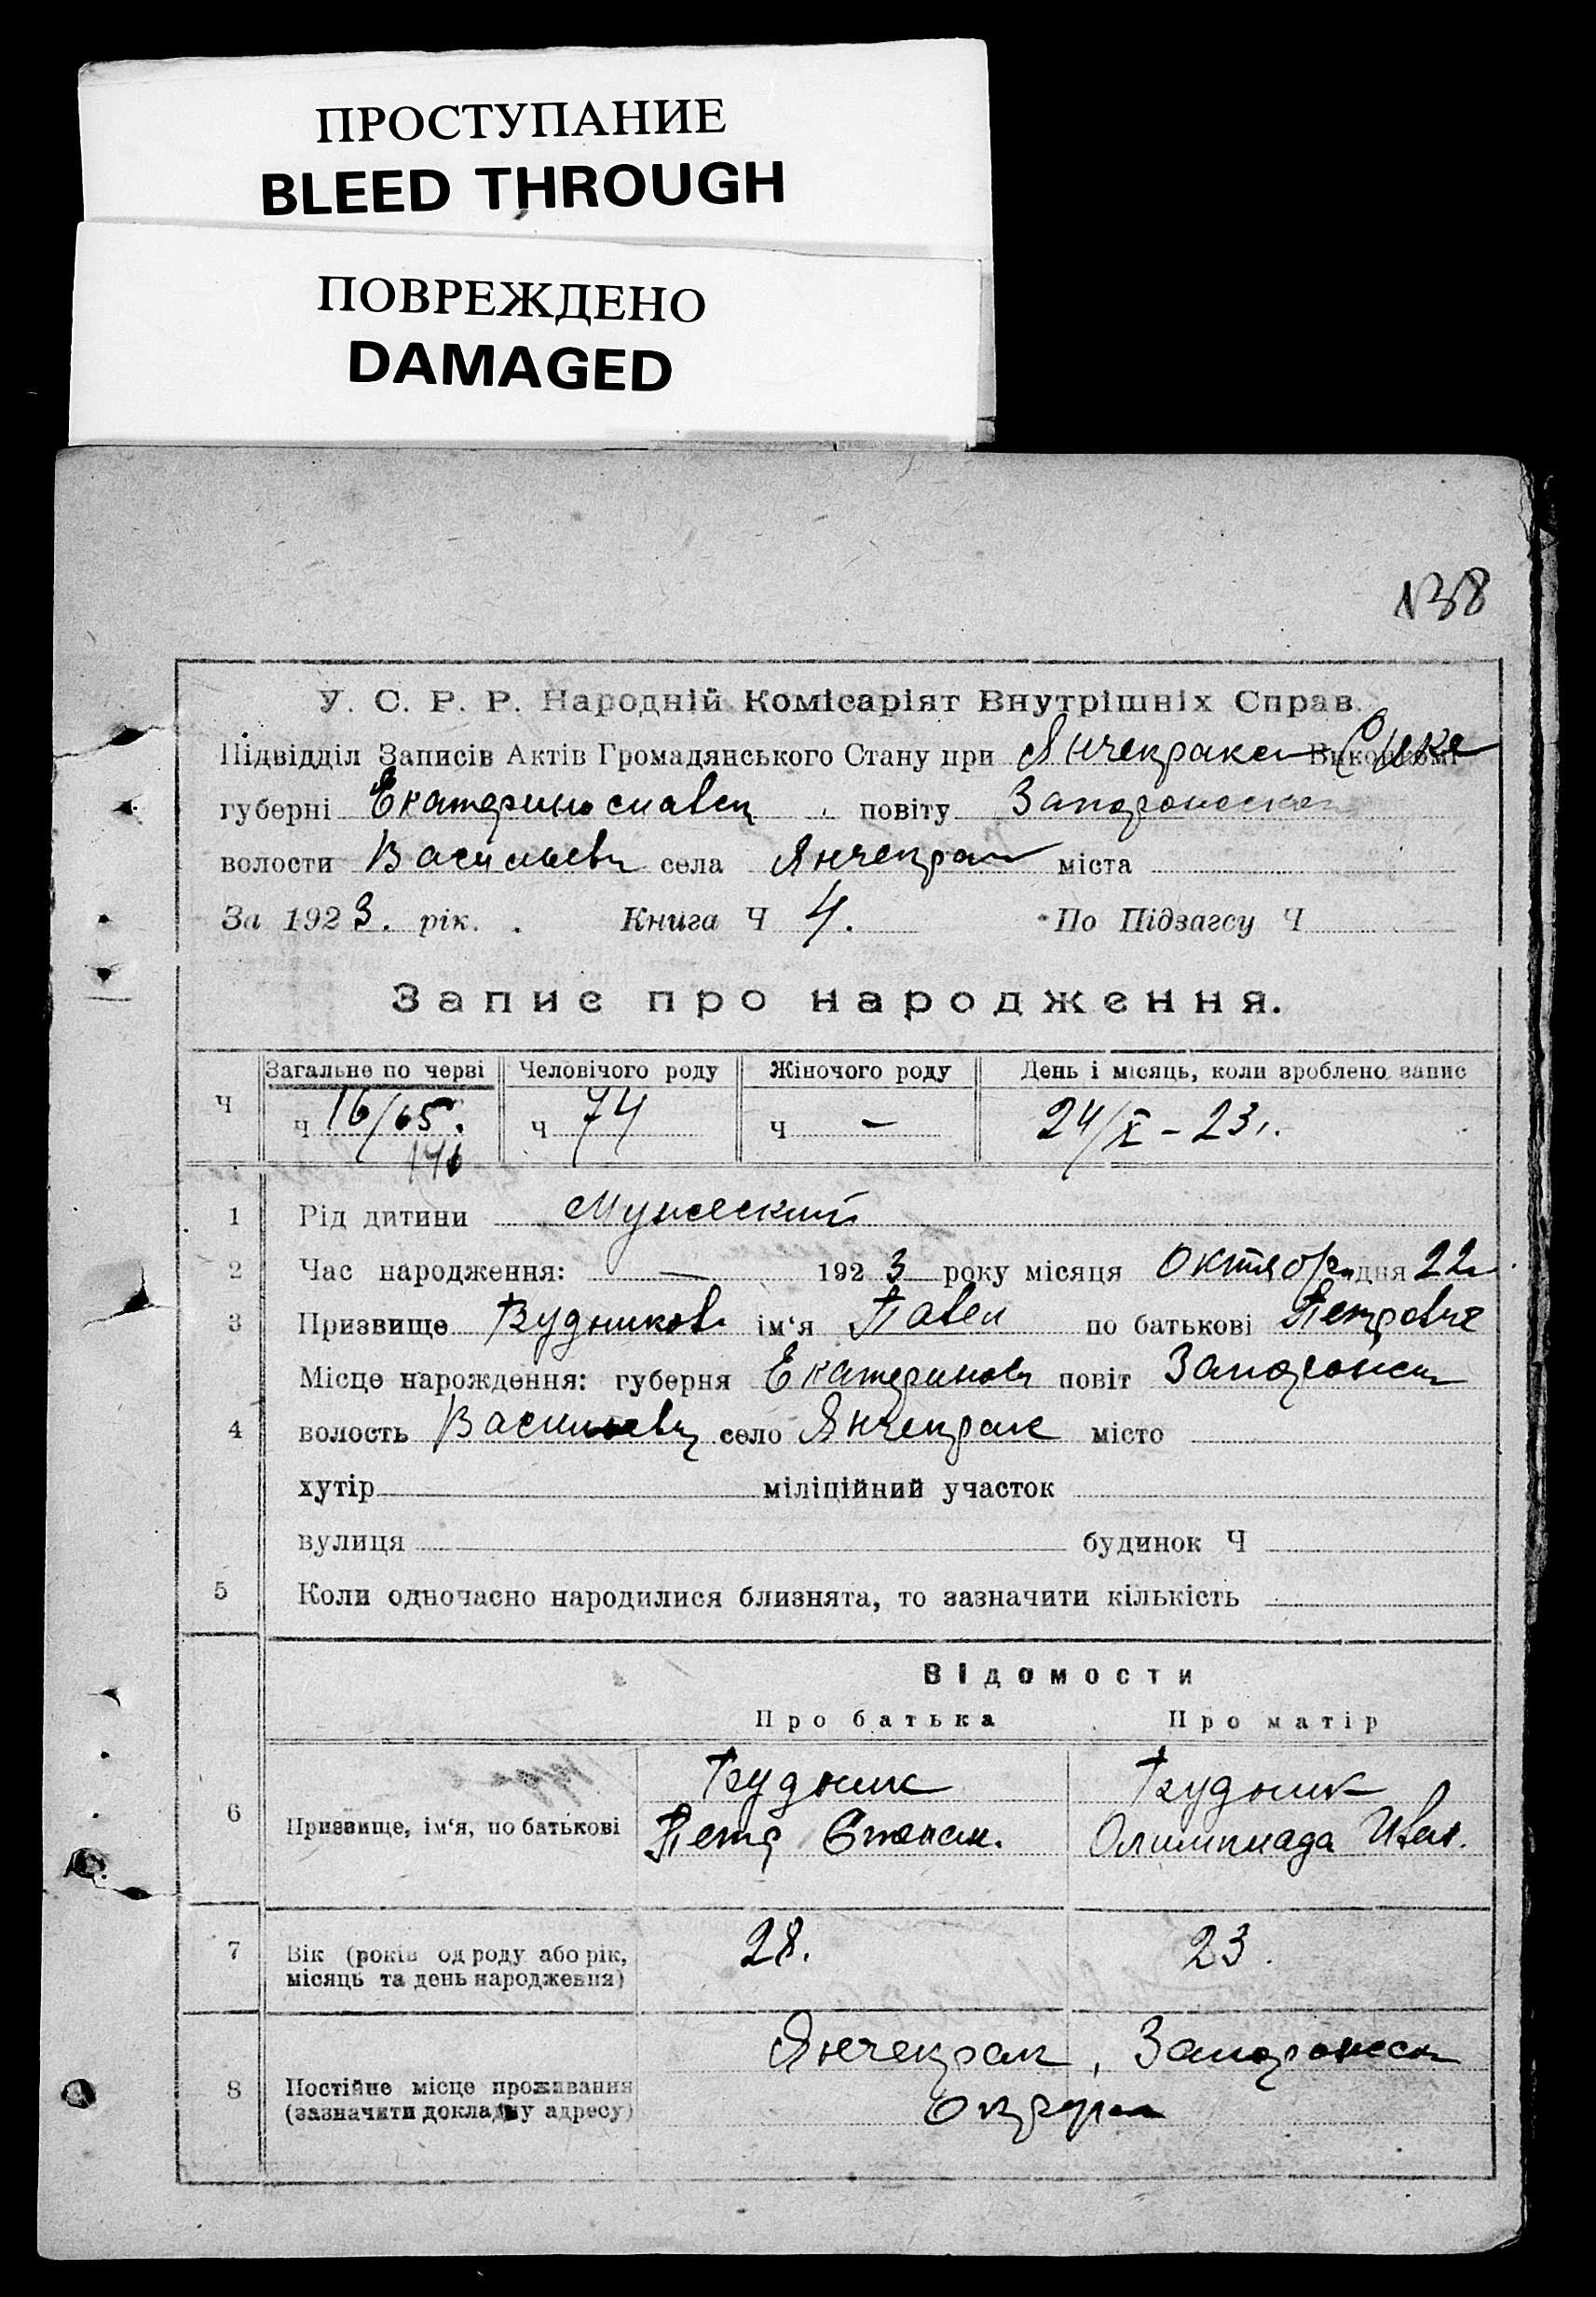 ПРОСТУПАНИЕ
BLEED THROUGH
ПОВРЕЖДЕНО
DAMAGED
138
У. С. Р. Р. Народній Комісаріят Внутрішніх Справ.
Підвідділ Записів Актів Громадянського Стану при Янчекрак
губерні Екатеринославск повіту Запорожск
волости Васильевк села Янчекрак міста
За 1923. рік. Книга Ч 4. По Підзагсу Ч
Запис про народження.
Загальне по черві Человічого роду Жіночого роду День і місяць, коли зроблено запис
Ч ч 16/65. ч 74 ч — 24/X – 23г.
146
1 Рід дитини Мужеский
2 Час народження: — 1923 року місяця Октября дня 22
3 Призвище Рудников ім‘я Павел по батькові Петрович
Місце нарождення: губерня Екатеринов повіт Запорожск
4 волость Васильевк село Янчекрак місто
хутір міліційний участок
вулиця будинок Ч
5 Коли одночасно народилися близнята, то зазначити кількість
Відомости
Про батька Про матір
Рудник Рудник
6 Призвище, ім‘я, по батькові Петр Степан. Олимпиада Иван.
7 Вік (років од роду або рік, 28. 23.
місяць та день народження)
Янчекрак, Запорожск
8 Постійне місце проживання
(зазначити докладну адресу) Округа